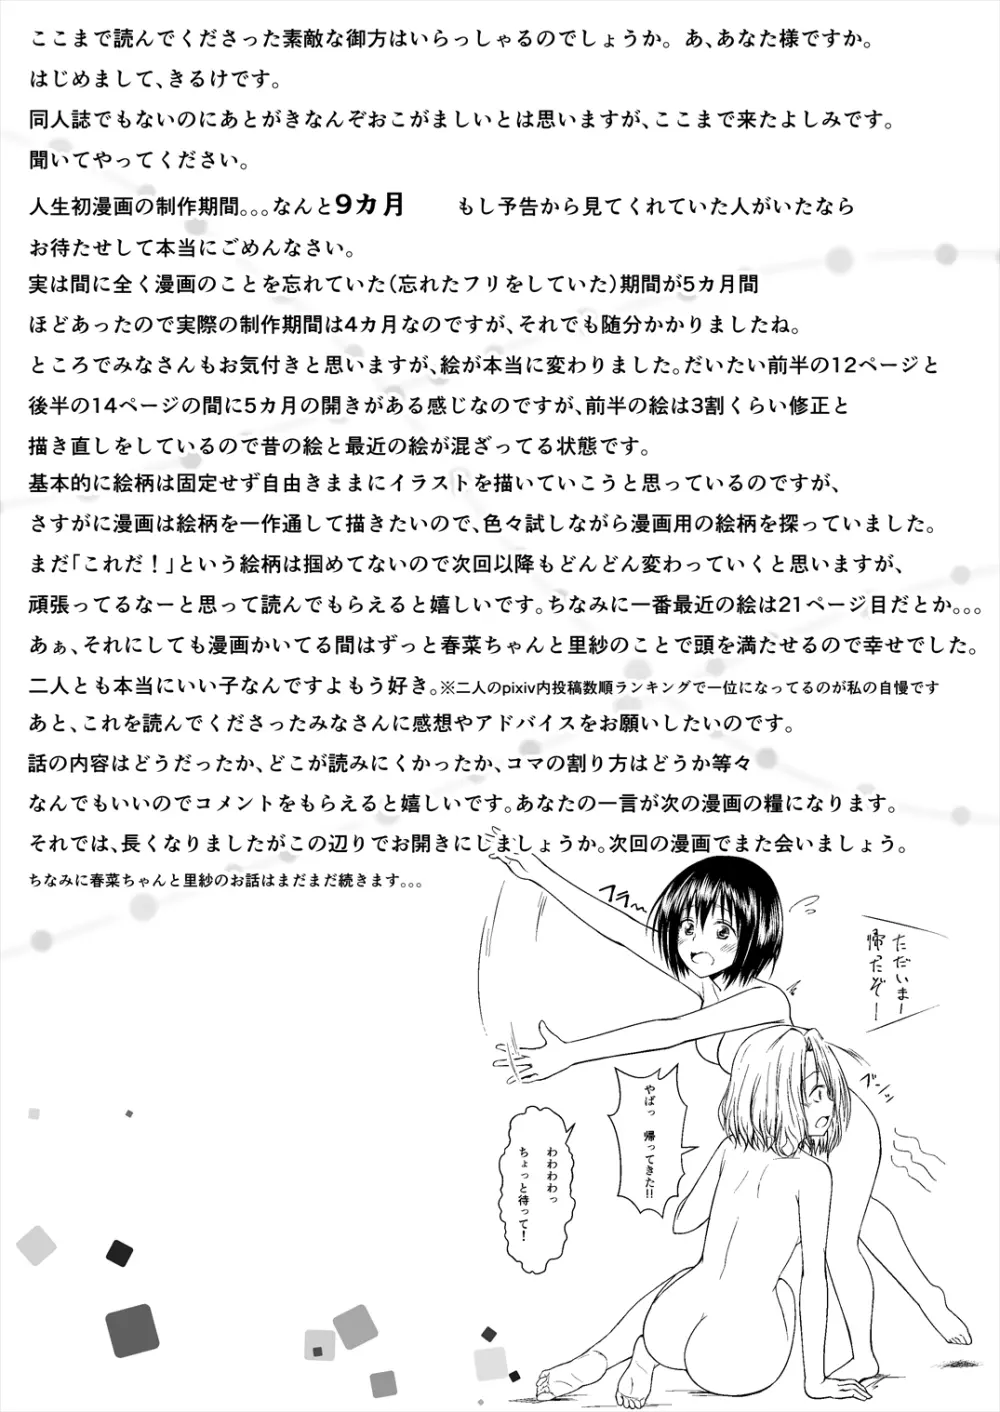 ここまで読んでくださった素敵な御方はいらっしゃるのでしょうか。あ、あなた様ですか。
はじめまして、きるけです。
同人誌でもないのにあとがきなんぞおこがましいとは思いますが、ここまで来たよしみです。
聞いてやってください。
人生初漫画の制作期間。。。なんと9カ月　　もし予告から見てくれていた人がいたなら
お待たせして本当にごめんなさい。
実は間に全く漫画のことを忘れていた（忘れたフリをしていた）期間が5カ月間
ほどあったので実際の制作期間は4カ月なのですが、それでも随分かかりましたね。
ところでみなさんもお気付きと思いますが、絵が本当に変わりました。だいたい前半の12ページと
後半の14ページの間に5カ月の開きがある感じなのですが、前半の絵は3割くらい修正と
描き直しをしているので昔の絵と最近の絵が混ざってる状態です。
基本的に絵柄は固定せず自由きままにイラストを描いていこうと思っているのですが、
さすがに漫画は絵柄を一作通して描きたいので、色々試しながら漫画用の絵柄を探っていました。
まだ「これだ！」という絵柄は掴めてないので次回以降もどんどん変わっていくと思いますが、
頑張ってるなーと思って読んでもらえると嬉しいです。ちなみに一番最近の絵は21ページ目だとか。。。
あぁ、それにしても漫画かいてる間はずっと春菜ちゃんと里紗のことで頭を満たせるので幸せでした。
二人とも本当にいい子なんですよもう好き。※二人のpixiv内投稿数順ランキングで一位になってるのが私の自慢です
あと、これを読んでくださったみなさんに感想やアドバイスをお願いしたいのです。
話の内容はどうだったか、どこが読みにくかったか、コマの割り方はどうか等々
なんでもいいのでコメントをもらえると嬉しいです。あなたの一言が次の漫画の糧になります。
それでは、長くなりましたがこの辺りでお開きにしましょうか。次回の漫画でまた会いましょう。
ちなみに春菜ちゃんと里紗のお話はまだまだ続きます。。。
フラ〜〜
ただいまー
帰ったぞー
ブンッ
やばっ　帰ってきた!!
わわわわっ
ちょっと待って！